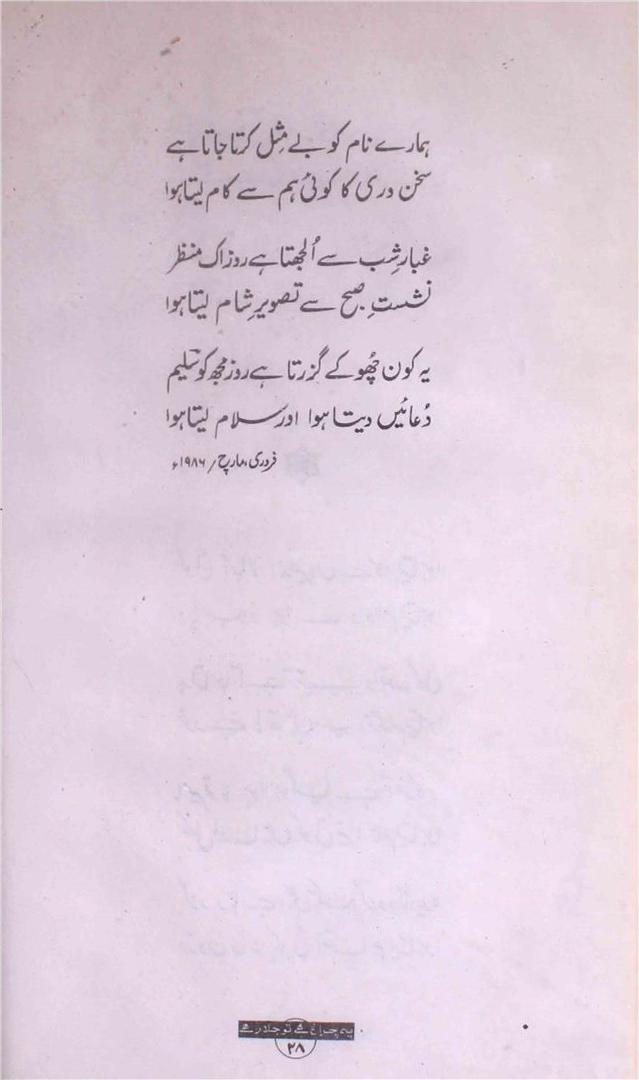 ہمارے نام کو بے مِثل کرتا جاتا ہے
سخن وری کا کوئی ہم سے کام لیتا ہوا
غبارِ شب سے اُلجھتا ہے روز اک منظر
نشستِ صبح سے تصویرِ شام لیتا ہوا
یہ کون چُھو کے گزرتا ہے روز مجھ کو سلیم
دُعائیں دیتا ہوا اور سلام لیتا ہوا
فروری، مارچ / ۱۹۸۶ء
یہ چراغ ہے تو جلا رہے
۲۸